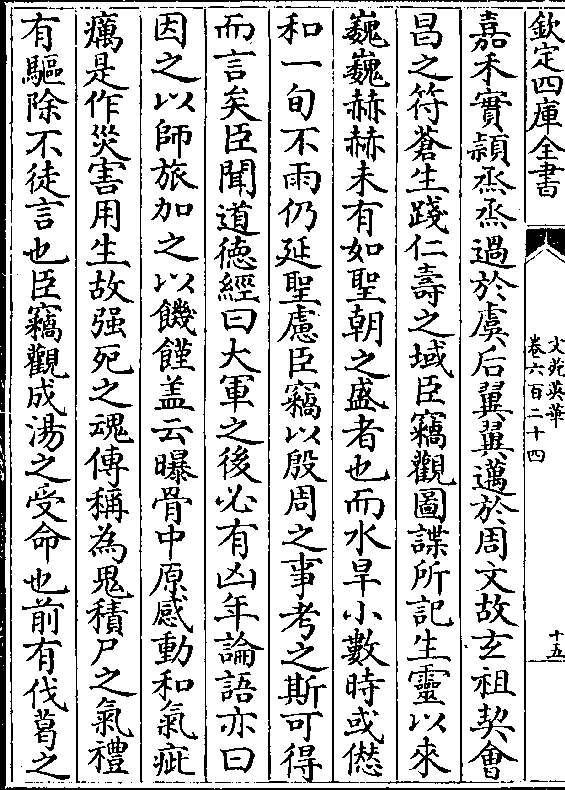 欽定四庫全書
文苑英華
卷六百二十四
十五
嘉禾實頴烝烝過於虞后翼翼邁於周文故玄祖契會
昌之符蒼生踐仁壽之域臣竊觀圖諜所記生靈以來
巍巍赫赫未有如聖朝之盛者也而水旱小數時或僽
和一旬不雨仍延聖慮臣竊以殷周之事考之斯可得
而言矣臣聞道徳經曰大軍之後必有凶年論語亦曰
因之以師旅加之以饑饉盖云曝骨中原感動和氣疵
癘是作災害用生故强死之魂傳稱為鬼積尸之氣禮
有驅除不徒言也臣竊觀成湯之受命也前有伐葛之